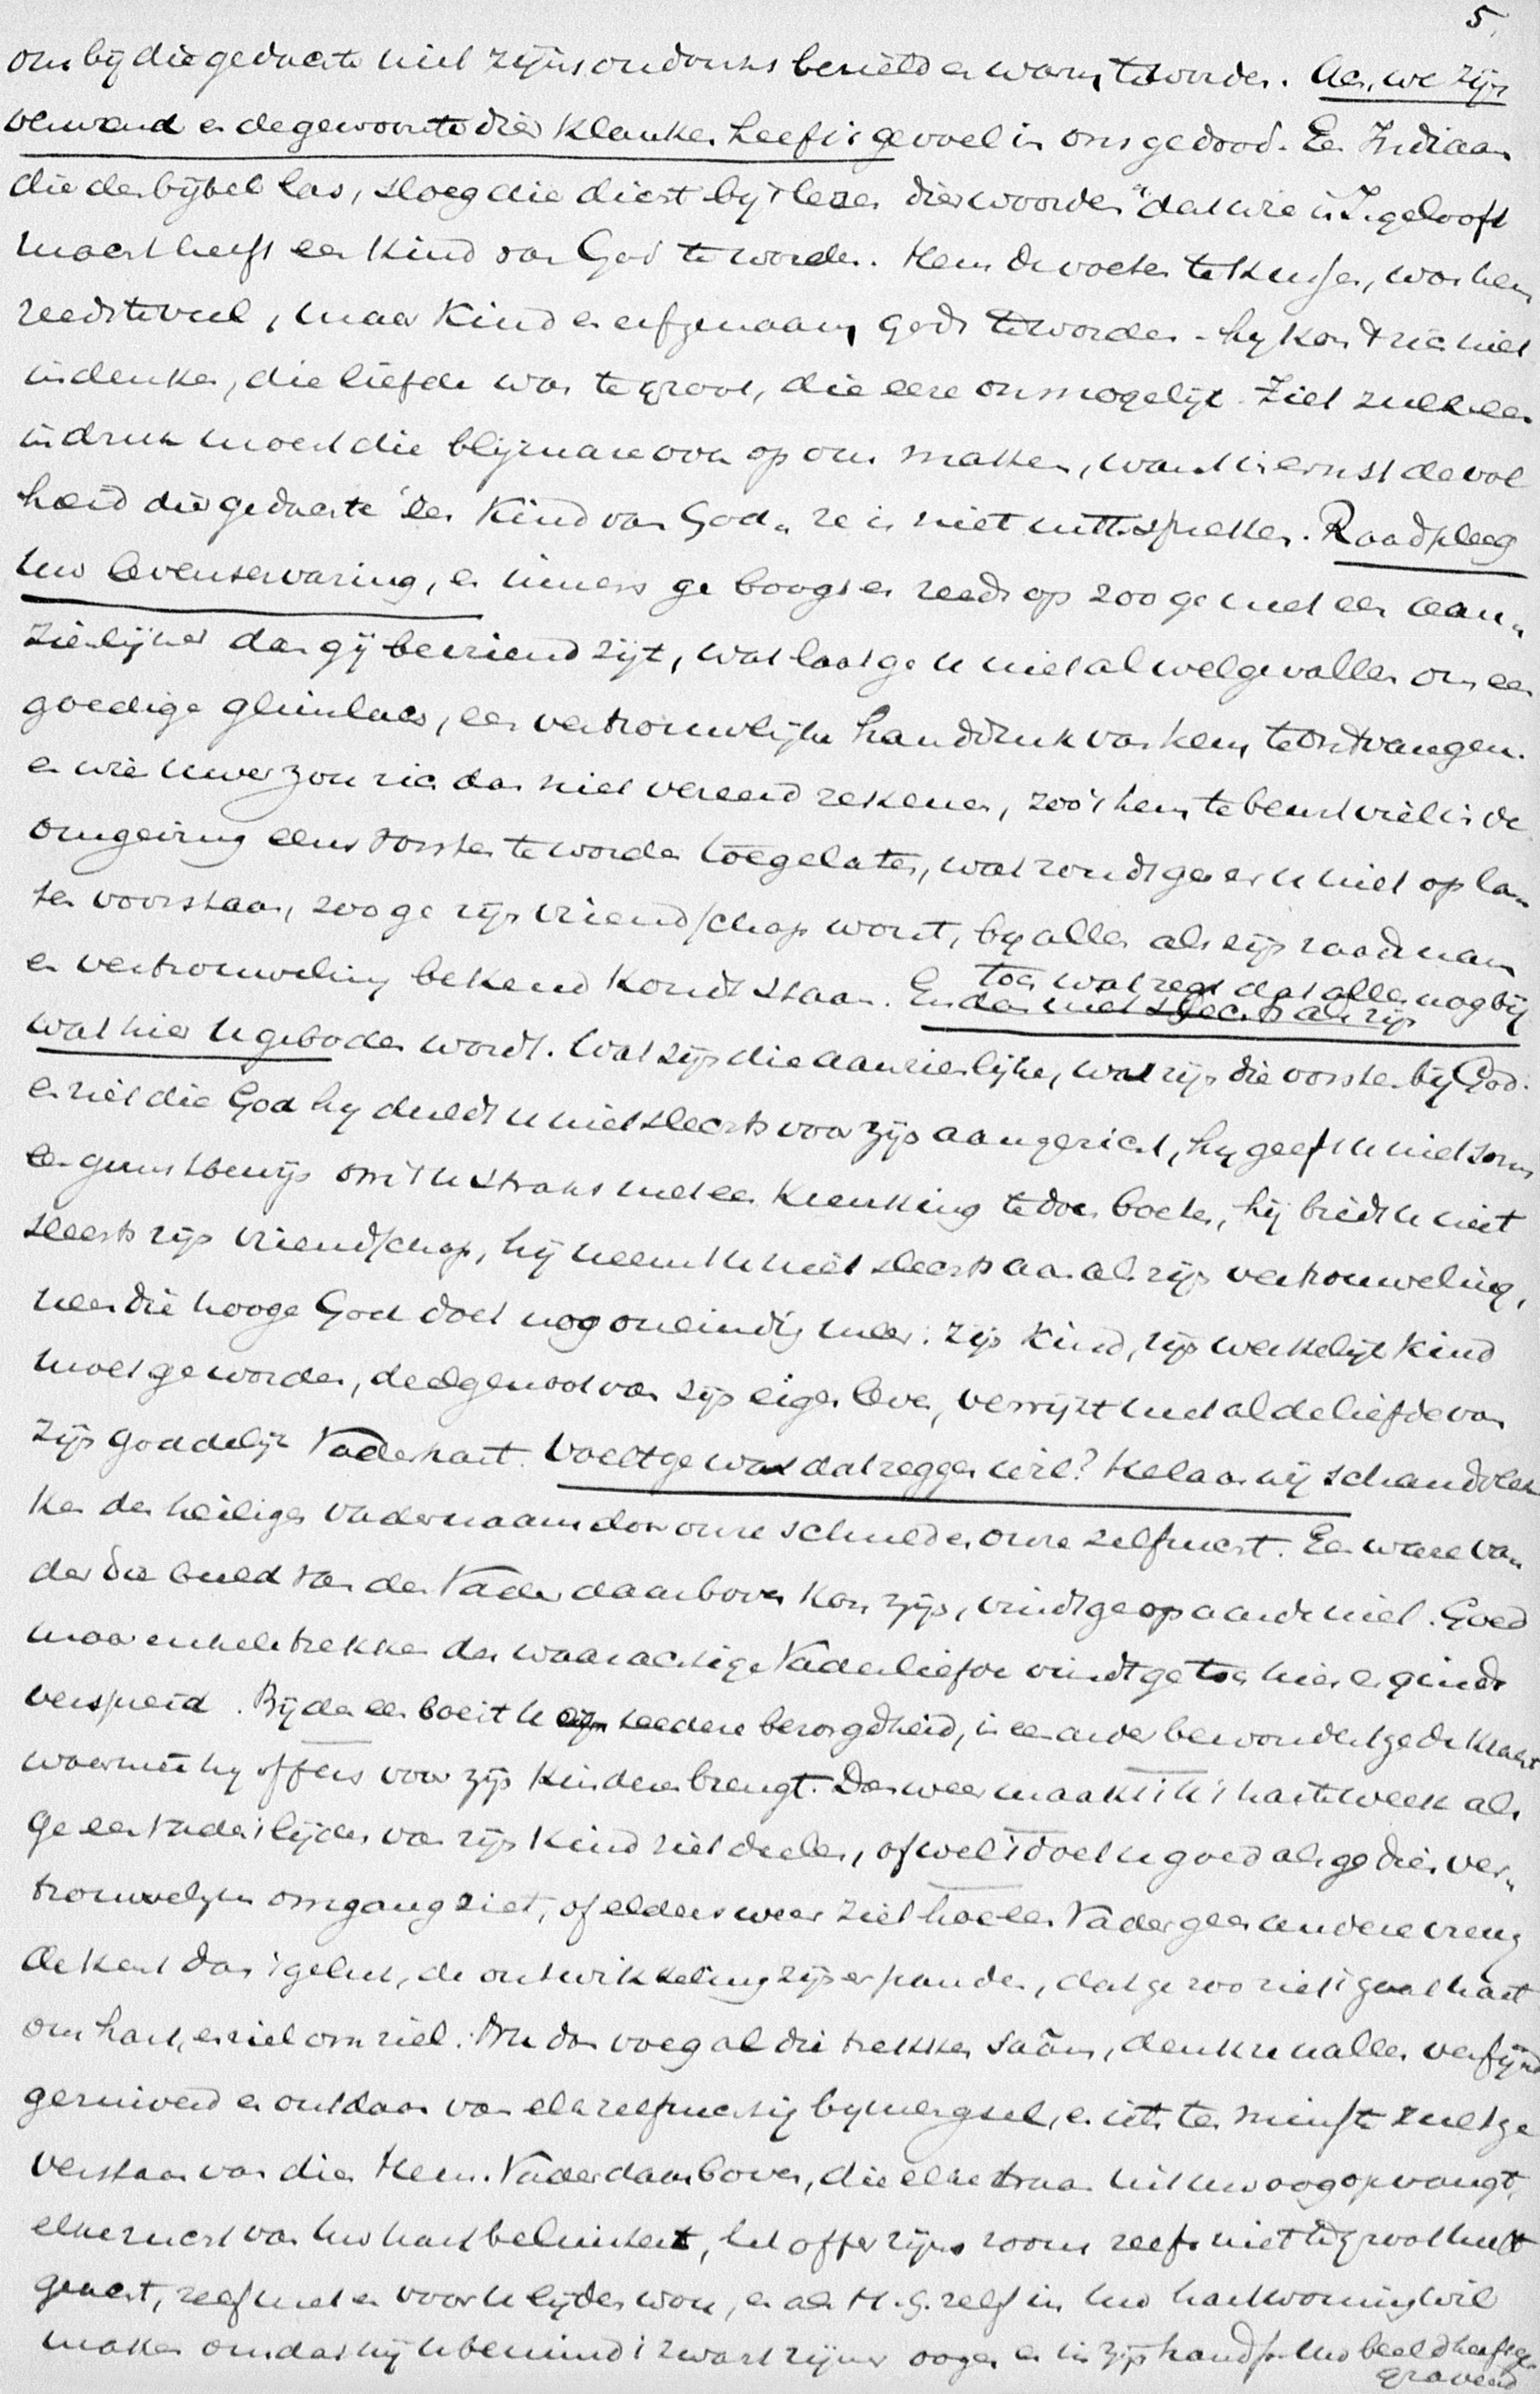 5.
om bij die gedachte niet zijns ondanks bezield en warm te worden. Ach, we zijn
verwend en de gewoonte dier klanken heeft 't gevoel in ons gedood. Een Indiaan
die den bijbel las, sloeg die dicht bij 't lezen dier woorden "dat wie in J. gelooft
macht heeft een kind van God te worden. Hem de voeten te kussen, was hem
reeds te veel, maar kind en erfgenaam Gods te worden - hij kon 't zich niet
indenken, die liefde was te groot, die eere onmogelijk. Ziet zulk een
indruk moest die blijmare ook op ons maken, want in ernst de vol
heid dier gedachte 'een kind van God" ze is niet uit te spreken. Raadpleeg
uw levenservaring, en immers ge boogt er reeds op zoo ge met een aan„
zienlijker dan gij bevriend zijt, wat laat ge u niet al welgevallen om een
goedige glimlach, een vertrouwelijken handdruk van hem te ontvangen.
en wie uwer zou zich dan niet vereerd rekenen, zoo 't hem te beurt viel in de
omgeving eens vorsten te worden toegelaten, wat zoudt ge er u niet op la„
ten voorstaan, zoo ge zijn vriendschap wont, bij allen als zijn raadsman
en vertrouweling bekend kondt staan. En toch wat zegt dat alles nog bij
dan niet slechts als zijn
wat hier u geboden wordt. Wat zijn die aanzienlijken, wat zijn die vorsten bij God.
en ziet die God hij duldt u niet slechts voor zijn aangezicht, hij geeft u niet soms
een gunstbewijs om 't u straks met een krenking te doen boeten, hij biedt u niet
slechts zijn vriendschap, hij neemt u niet slechts aan als zijn vertrouweling,
neen die hooge God doet nog oneindig meer: zijn kind, zijn werkelijk kind
moet ge worden, deelgenoot van zijn eigen leven, verrijkt met al de liefde van
zijn goddelijk Vaderhart. Voelt ge wat dat zeggen wil? Helaas wij schandvlek
ken den heiligen vadernaam door onze schulden, onze zelfzucht. Een ware va„
der die beeld van den Vader daarboven kon zijn, vindt ge op aarde niet. Goed
maar enkele trekken der waarachtige Vaderliefde vindt ge toch hier en ginds
verspreid. Bij den een boeit u teedere bezorgdheid, in een ander bewondert ge de kracht
waarmêe hij offers voor zijn kinderen brengt. Dan weer maakt 't u 't harte week als
ge een vader 't lijden van zijn kind ziet deelen, of wel 't doet u goed als ge dien ver„
trouwelijken omgang ziet, of elders weer ziet hoe een Vader geen andere vreug
de kent dan 't geluk, de ontwikkeling zijner panden, dat ge zoo ziet 't gaat hart
om hart, en ziel om ziel. Nu dan voeg al die trekken saâm, denk ze u allen verfijnd
gezuiverd en ontdaan van elk zelfzuchtig bijmengsel, en iets ten minste zult ge
verstaan van dien Hem. Vader daarboven, die elke traan uit uw oog opvangt,
elke zucht van uw hart beluistert, het offer zijns zoons zelfs niet te groot heeft
geacht, zelf met en voor u lijden wou, en als H. G. zelf in uw hart woning wil
maken omdat hij u bemint 't zwart zijner oogen en in zijn handpalm uw beeld heeft ge
graveerd